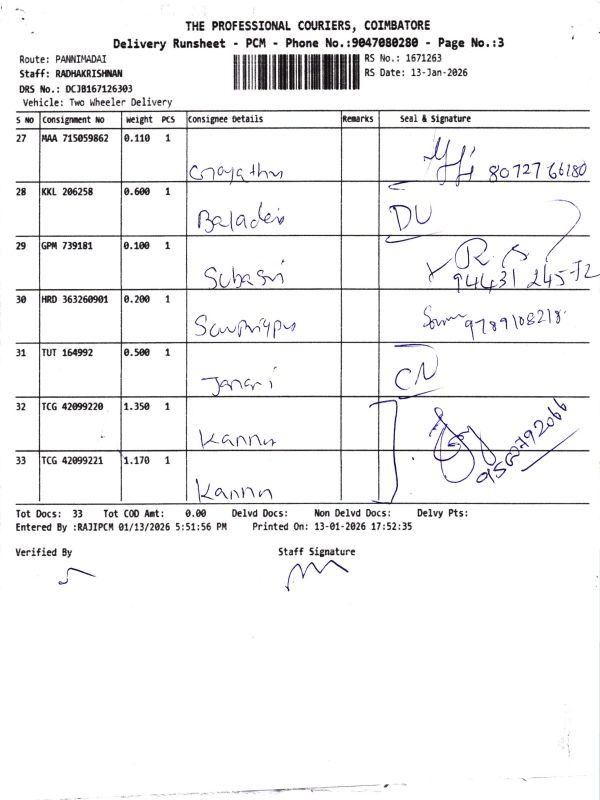 THE PROFESSIONAL COURIERS, COIMBATORE
Delivery Runsheet - PCM - Phone No.:9047080280 - Page No.:3
Route: PANNIMADAI RS No.: 1671263
Staff: RADHAKRISHNAN RS Date: 13-Jan-2026
DRS No.: DCJB167126303
Vehicle: Two Wheeler Delivery
S NO Consignment No Weight PCS Consignee Details Remarks Seal & Signature
27 MAA 715059862 0.110 1
80727 66180
28 KKL 206258 0.600 1
DU
29 GPM 739181 0.100 1 R. S.
Subasri 94431 245 72
30 HRD 363260901 0.200 1
9789108218
31 TUT 164992 0.500 1
Janani CN
32 TCG 42099220 1.350 1
Kannu
33 TCG 42099221 1.170 1
Kannu
Tot Docs: 33 Tot COD Amt: 0.00 Delvd Docs: Non Delvd Docs: Delvy Pts:
Entered By :RAJIPCM 01/13/2026 5:51:56 PM Printed On: 13-01-2026 17:52:35
Verified By Staff Signature